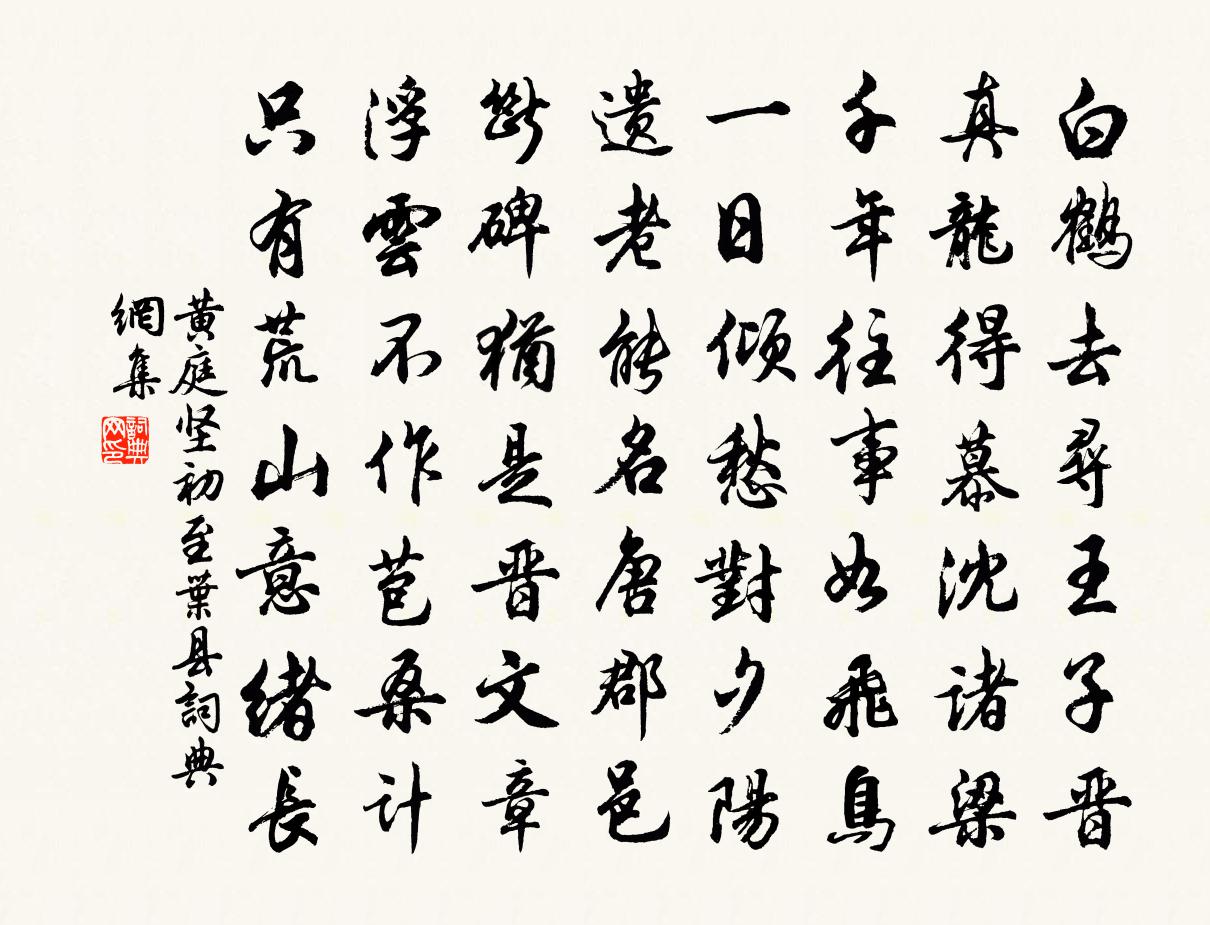 白鶴去尋王子晋
真龍得慕沈诸梁
千年往事如飛鳥
一日傾愁對夕陽
遗老能名唐郡邑
斷碑猶是晋文章
浮雲不作苞桑计
只有荒山意緒長
黄庭坚初至葉县詞典
網集
詞典
网印